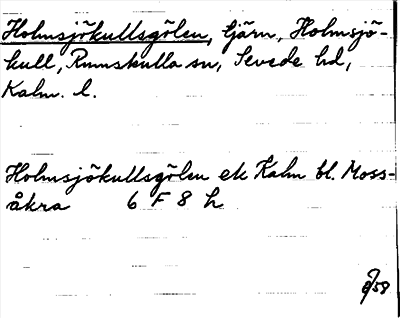 Holmsjökullsgölen, tjärn, Holmsjö-
kull, Rumskulla sn, Sevede hd,
Kalm. l.
Holmsjökullsgölen ek Kalm bl. Moss-
åkra 6 F 8 h